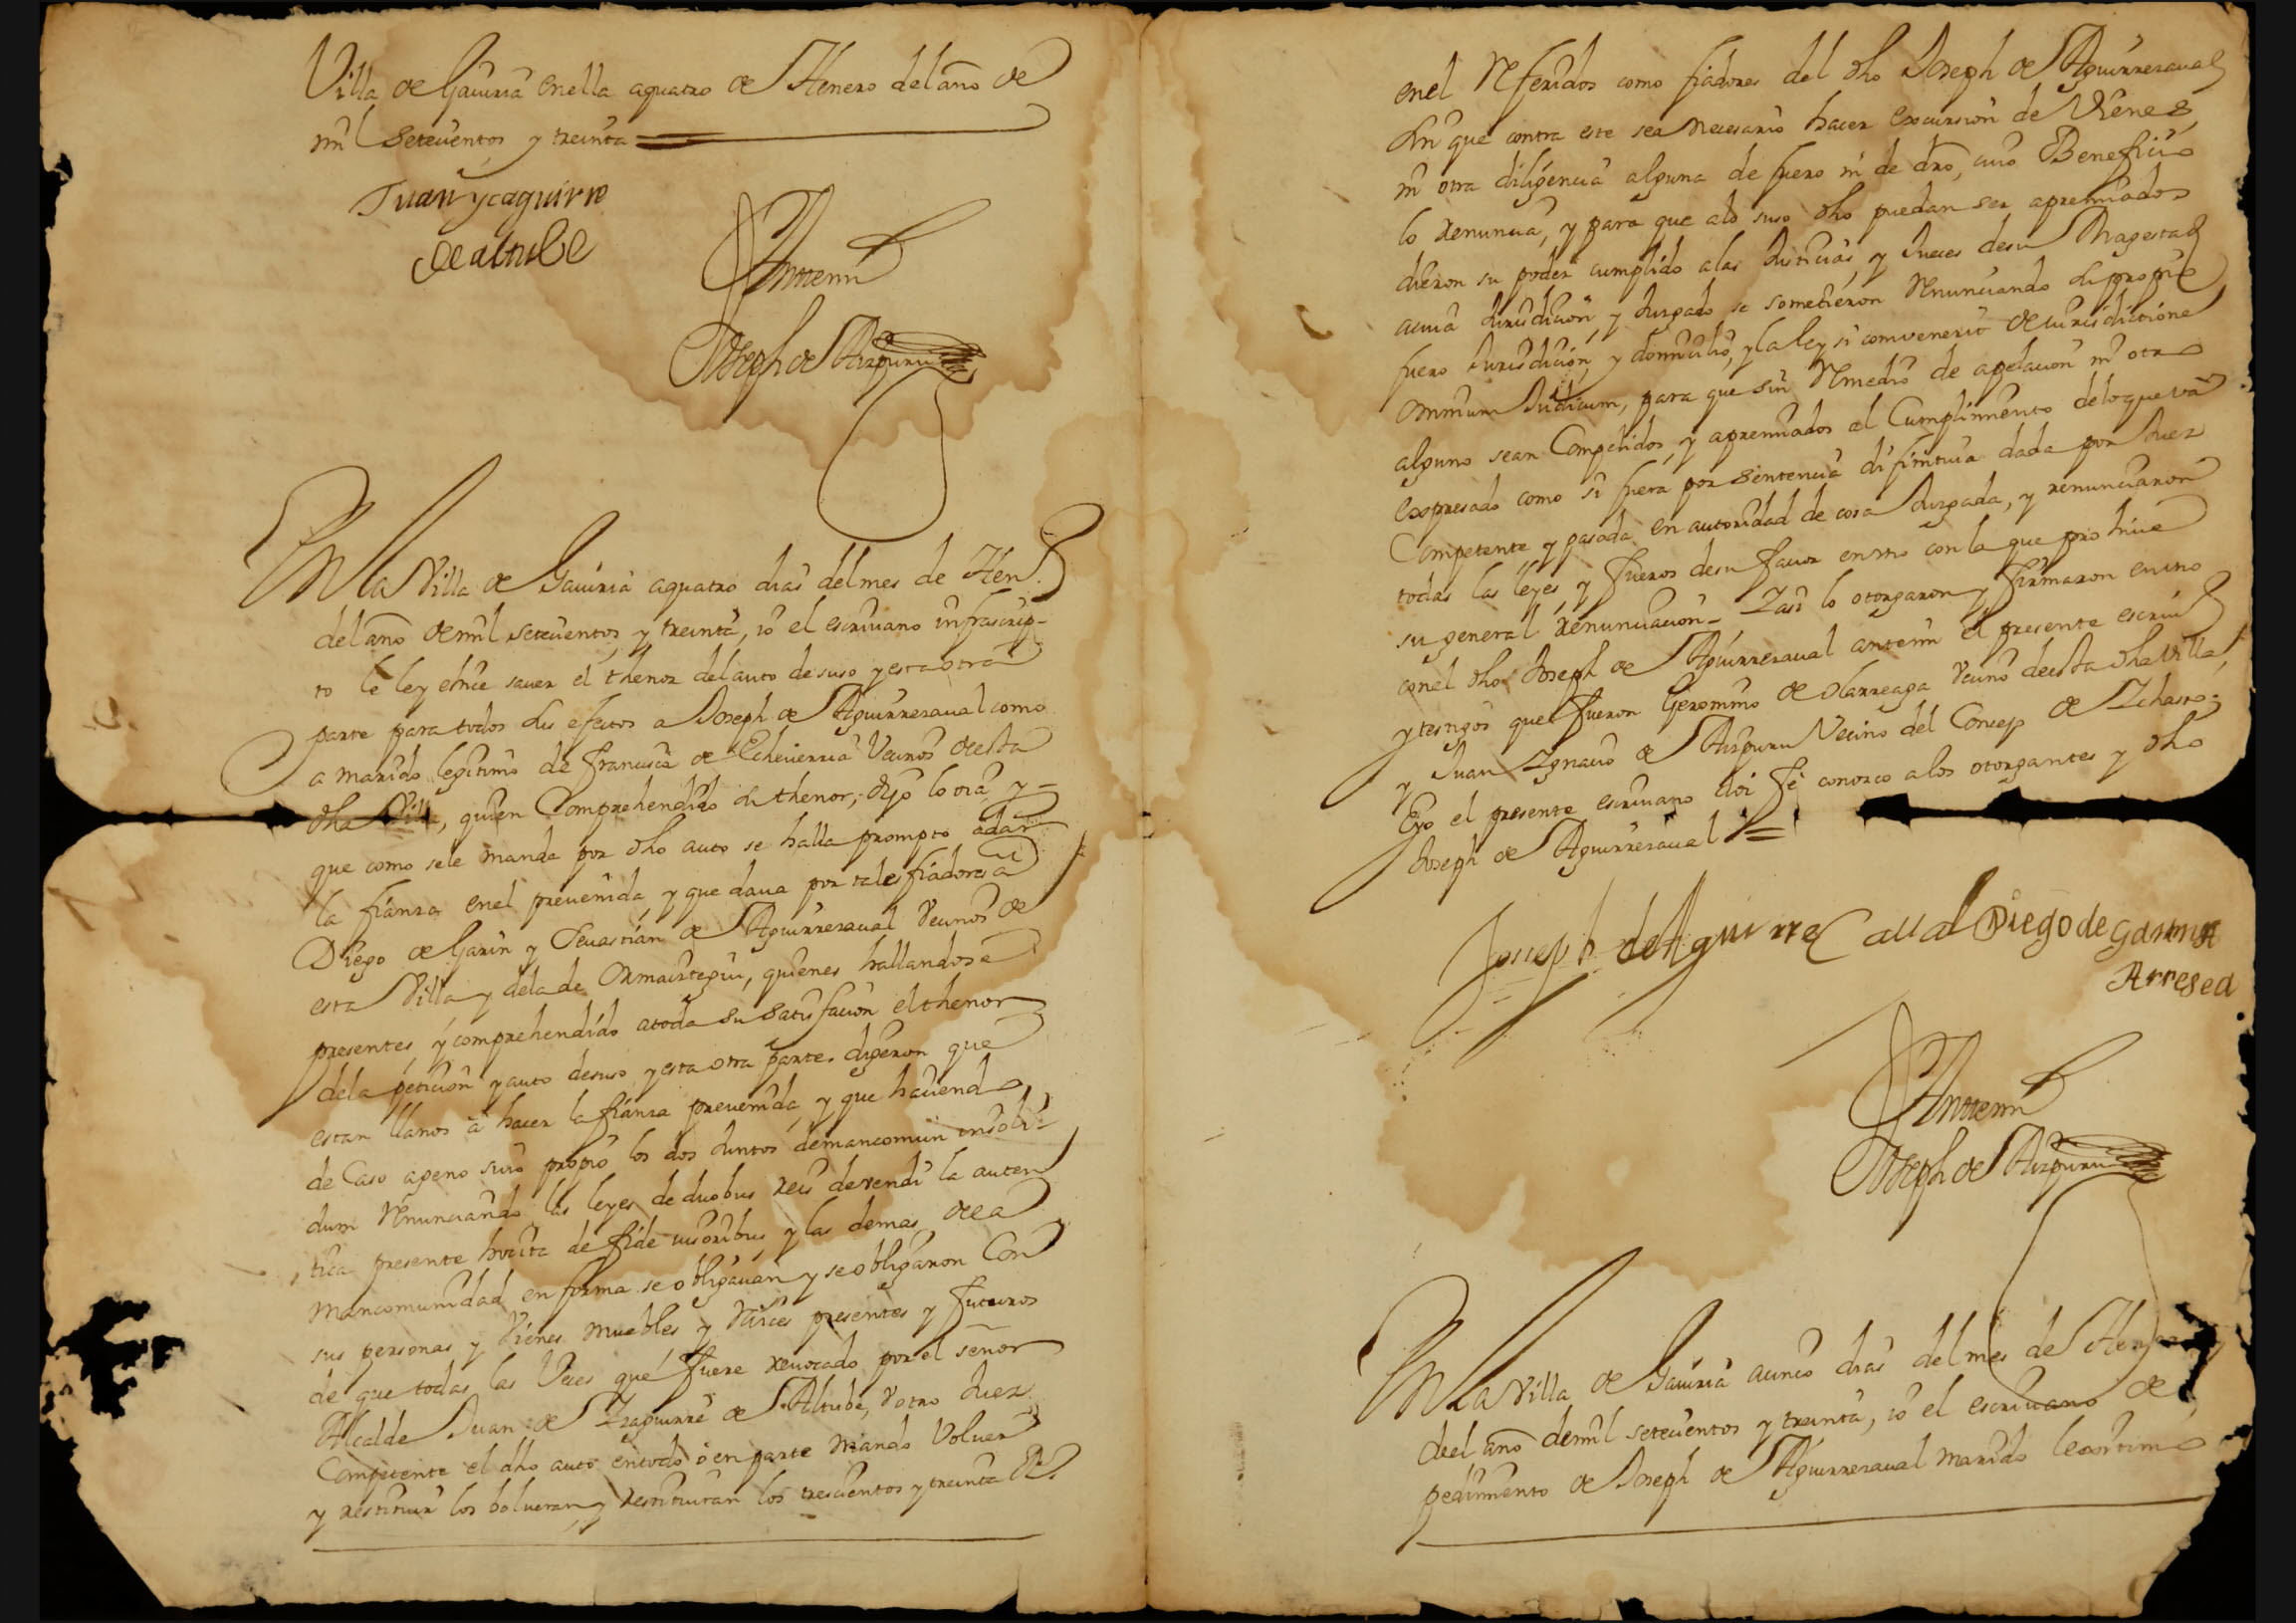 Villa de Gauiria en ella a quatro de Henero del año de
mil setecientos y treinta
Juan ycaguirre
de altube
Ante mi
Joseph de Aizpuru
En la Villa de Gauiria a quatro dias del mes de Hen.º
del año de mil setecientos y treinta, io el escriuano infrascrip-
to le ley e hice sauer el thenor del auto de suso y esta otra
parte para todos sus efectos a Joseph de Aguirrezaual como
a marido legitimo de Francisca de Echeuerria Vecinos de esta
dha Villa, quien Comprehendido su thenor, dijo lo oia y
que como se le manda por dho auto se halla prompto a dar
la fianza en el preuenida, y que daua por tales fiadores a
Diego de Garin y Seuastian de Aguirrezaual Vecinos de
esta Villa y de la de Ormaiztegui, quienes hallandose
presentes, y comprehendido a toda su satisfacion el thenor
de la peticion y auto de suso y esta otra parte, digeron que
estan llanos à hacer la fianza preuenida, y que hauiendo
de Caso ageno suio propio los dos Juntos de mancomun insoli-
dum Renunciando las leyes de duobus reis devendi la auten
tica presente hocita de fide iusoribus, y las demas de ea
mancomunidad en forma se obligauan y se obligaron Con
sus personas y Vienes muebles y Raices presentes y futuros
de que todas las Veces que fuere reuocado por el señor
Alcalde Juan de Yzaguirre de Altube, V otro Juez
Competente el dho auto en todo ò en parte Mando Voluer
y restituir los bolueran, y restituiran los trescientos y treinta R.s
en el Referidos como fiadores del dho Joseph de Aguirrezaual
sin que contra este sea necesario hacer excursion de Vienes,
ni otra diligencia alguna de fuero ni de dro, cuio Beneficio
lo renuncia, y para que a lo suso dho puedan ser apremiados
dieron su poder cumplido a las Justicias, y Jueces de su Magestad
a cuia Jurisdicion y Juzgado se sometieron Renunciando su propio
fuero Jurisdicion, y domicilio, y la ley si convenerit de iurisdictione
omnium Judicum, para que sin Remedio de apelacion ni otro
alguno sean Compelidos, y apremiados al Cumplimiento de lo que va
expresado como si fuera por sentencia difinitiua dada por Juez
Competente y pasada en autoridad de cosa Juzgada, y renunciaron
todas las leyes, y fueros de su fauor en vno con la que prohiue
su general renunciacion Y asi lo otorgaron y firmaron en vno
con el dho Joseph de Aguirrezaual ante mi el presente escriu.º
y testigos que fueron Geronimo de Olarreaga Vecino de esta dha Villa,
y Juan Ygnacio de Aizpuru Vecino del Consejo de Ychaso;
E yo el presente escriuano doi fe conozco a los otorgantes y dho
Joseph de Aguirrezaual
Joseph de Aguirre Caual Diego de Garin
Arresea
Ante mi
Joseph de Aizpuru
En la Villa de Gauiria a cinco dias del mes de Henero
de el año de mil setecientos y treinta, io el escriuano de
pedimiento de Joseph de Aguirrezaual marido lexitimo